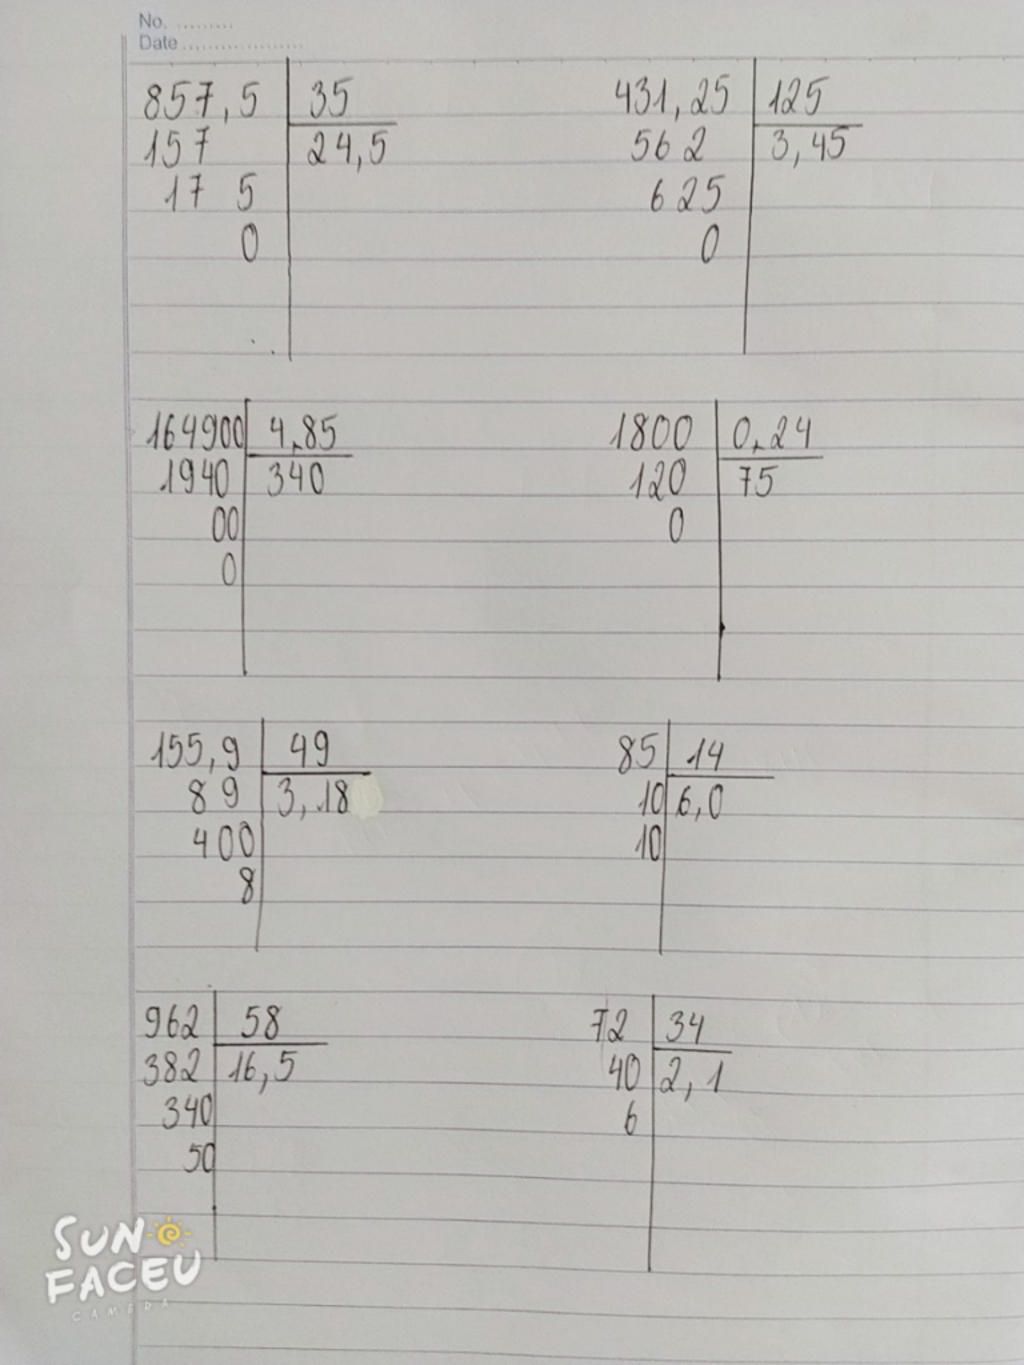 No. .........
Date ..................
857,5 35
157 24,5
17 5
0
431,25 125
562 3,45
625
0
164900 4,85
1940 340
00
0
1800 0,24
120 75
0
155,9 49
89 3,18
400
8
85 14
10 6,0
10
962 58
382 16,5
340
50
72 34
40 2,1
6
SUN
FACEU
CAMERA